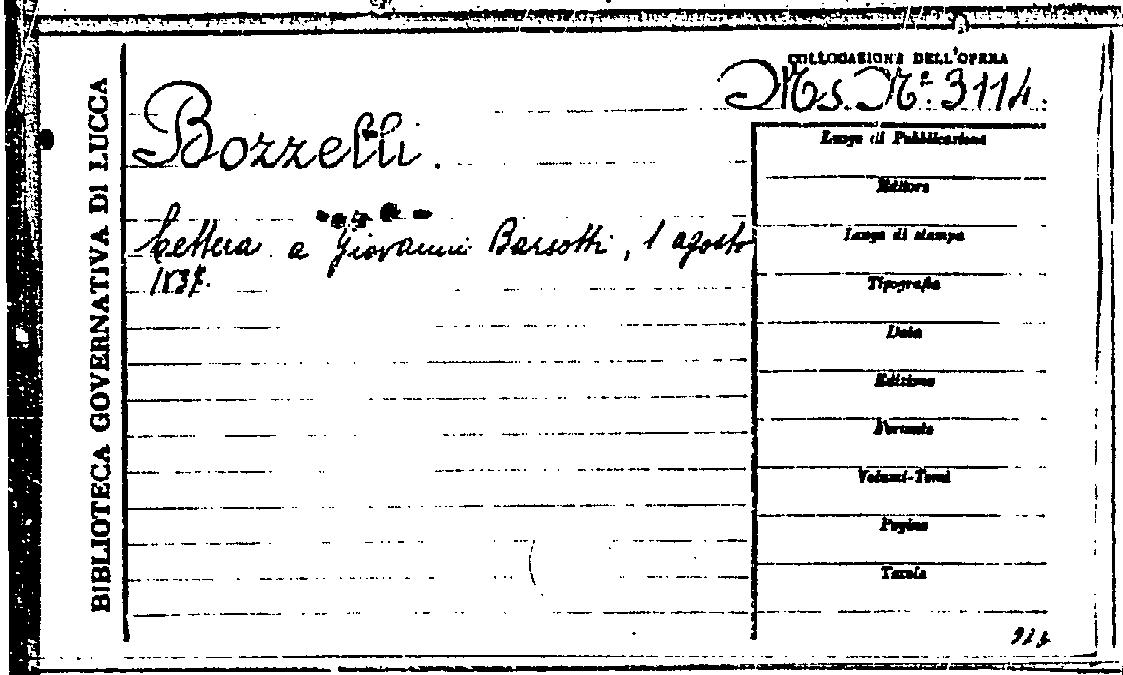 BIBLIOTECA GOVERNATIVA DI LUCCA
COLLOCAZIONE DELL'OPERA
Ms. N.º 3114.
Bozzelli.
Lettera a Giovanni Barsotti, 1 agosto
Luogo di Pubblicazione
Editore
Luogo di stampa
Tipografia
Data
Edizione
Formato
Volumi-Tomi
Pagine
Tavole